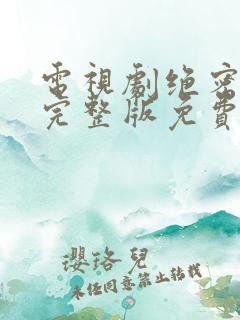 電視劇绝密
完整版免費
瓔珞兒
未经同意禁止转载